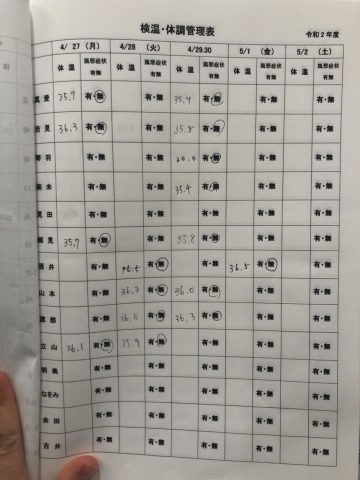 検温・体調管理表 令和2年度
4/27(月) 4/28(火) 4/29.30 5/1(金) 5/2(土)
体温 風邪症状有無 体温 風邪症状有無 体温 風邪症状有無 体温 風邪症状有無 体温 風邪症状有無
真愛 35.7 有・無 有・無 35.4 有・無 有・無 有・無
吉見 36.3 有・無 有・無 35.8 有・無 有・無 有・無
琴羽 有・無 有・無 36.6 有・無 有・無 有・無
有・無 有・無 35.4 有・無 有・無 有・無
見田 有・無 有・無 有・無 有・無 有・無
細見 35.7 有・無 有・無 35.8 有・無 有・無 有・無
酒井 有・無 36.5 有・無 有・無 36.5 有・無 有・無
山本 有・無 36.3 有・無 36.0 有・無 有・無 有・無
有・無 36.6 有・無 36.3 有・無 有・無 有・無
立山 36.1 有・無 35.9 有・無 有・無 有・無 有・無
明美 有・無 有・無 有・無 有・無 有・無
なをみ 有・無 有・無 有・無 有・無 有・無
余田 有・無 有・無 有・無 有・無 有・無
吉井 有・無 有・無 有・無 有・無 有・無